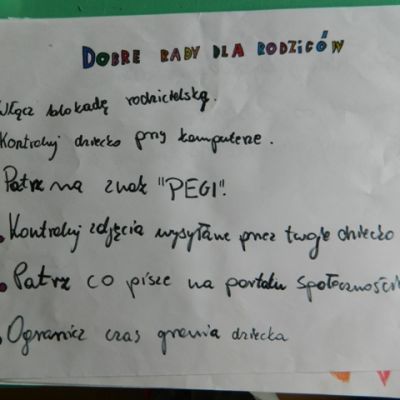 DOBRE RADY DLA RODZICÓW
Włącz blokadę rodzicielską.
Kontroluj dziecko przy komputerze.
Patrz na znak "PEGI".
Kontroluj zdjęcia wysyłane przez twoje dziecko
Patrz co pisze na portalu społeczności
Ogranicz czas grania dziecka